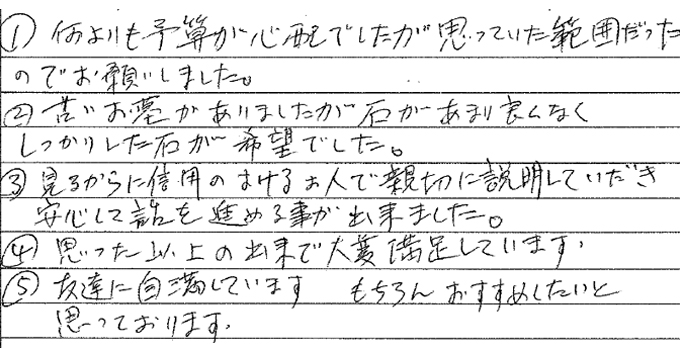 ① 何よりも予算が心配でしたが思っていた範囲だった
のでお願いしました。
② 古いお墓がありましたが石があまり良くなく
しっかりした石が希望でした。
③ 見るからに信用のおけるお人で親切に説明していただき
安心して話を進める事が出来ました。
④ 思った以上の出来で大変満足しています.
⑤ 友達に自満しています もちろんおすすめしたいと
思っております.